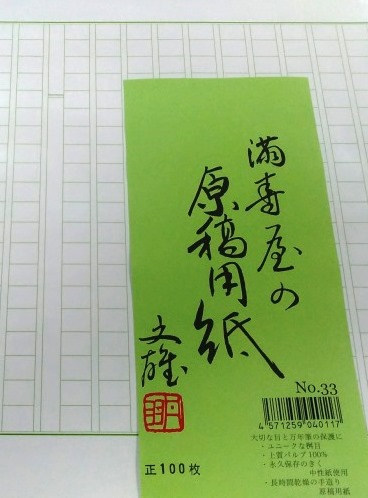 満寿屋の
原稿用紙
文雄
No.33
4 571259 040117
大切な目と万年筆の保護に
・ユニークな桝目
・上質パルプ100%
・永久保存のきく
中性紙使用
・長時間乾燥の手造り
原稿用紙
正100枚